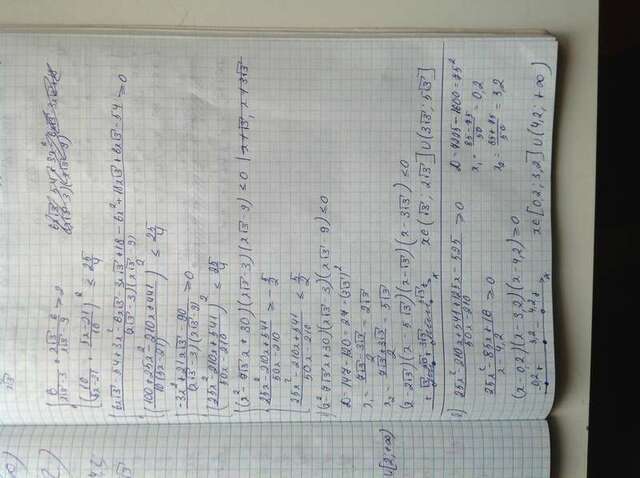 { 6/(x√3-3) + (x√3-6)/(x√3-9) ≥ 2
(10/(5x-21) + (5x-21)/10)² ≤ 25/4
{ (6x√3-54+3x²-6x√3-3x√3+18-6x²+18x√3+6x√3-54)/((x√3-3)(x√3-9)) ≥0
((100+25x²-210x+441)/(10(5x-21)))² ≤ 25/4
{ (-3x²+21x√3-90)/((x√3-3)(x√3-9)) ≥0
((25x²-210x+541)/(50x-210))² ≤ 25/4
{ (x²-7√3x+30)(x√3-3)(x√3-9) ≤0
(25x²-210x+541)/(50x-210) ≥ -5/2
(25x²-210x+541)/(50x-210) ≤ 5/2
(x²-7√3x+30)(x√3-3)(x√3-9) ≤0
D=147-120=27=(3√3)²
x₁= (7√3-3√3)/2 = 2√3
x₂= (7√3+3√3)/2 = 5√3
(x-2√3)(x-5√3)(x-√3)(x-3√3) ≤0
x∈(√3; 2√3]∪(3√3; 5√3]
∪[2;+∞)
(25x²-210x+541+125x-525)/(50x-210) ≥0 D=7225-1600=75²
(25x²-85x+16)/(x-4,2) ≥0 x₁= (85-75)/50 = 0,2
x₂= (85+75)/50 = 3,2
(x-0,2)(x-3,2)(x-4,2)≥0
0,2 3,2 4,2 x x∈[0,2; 3,2]∪(4,2; +∞)